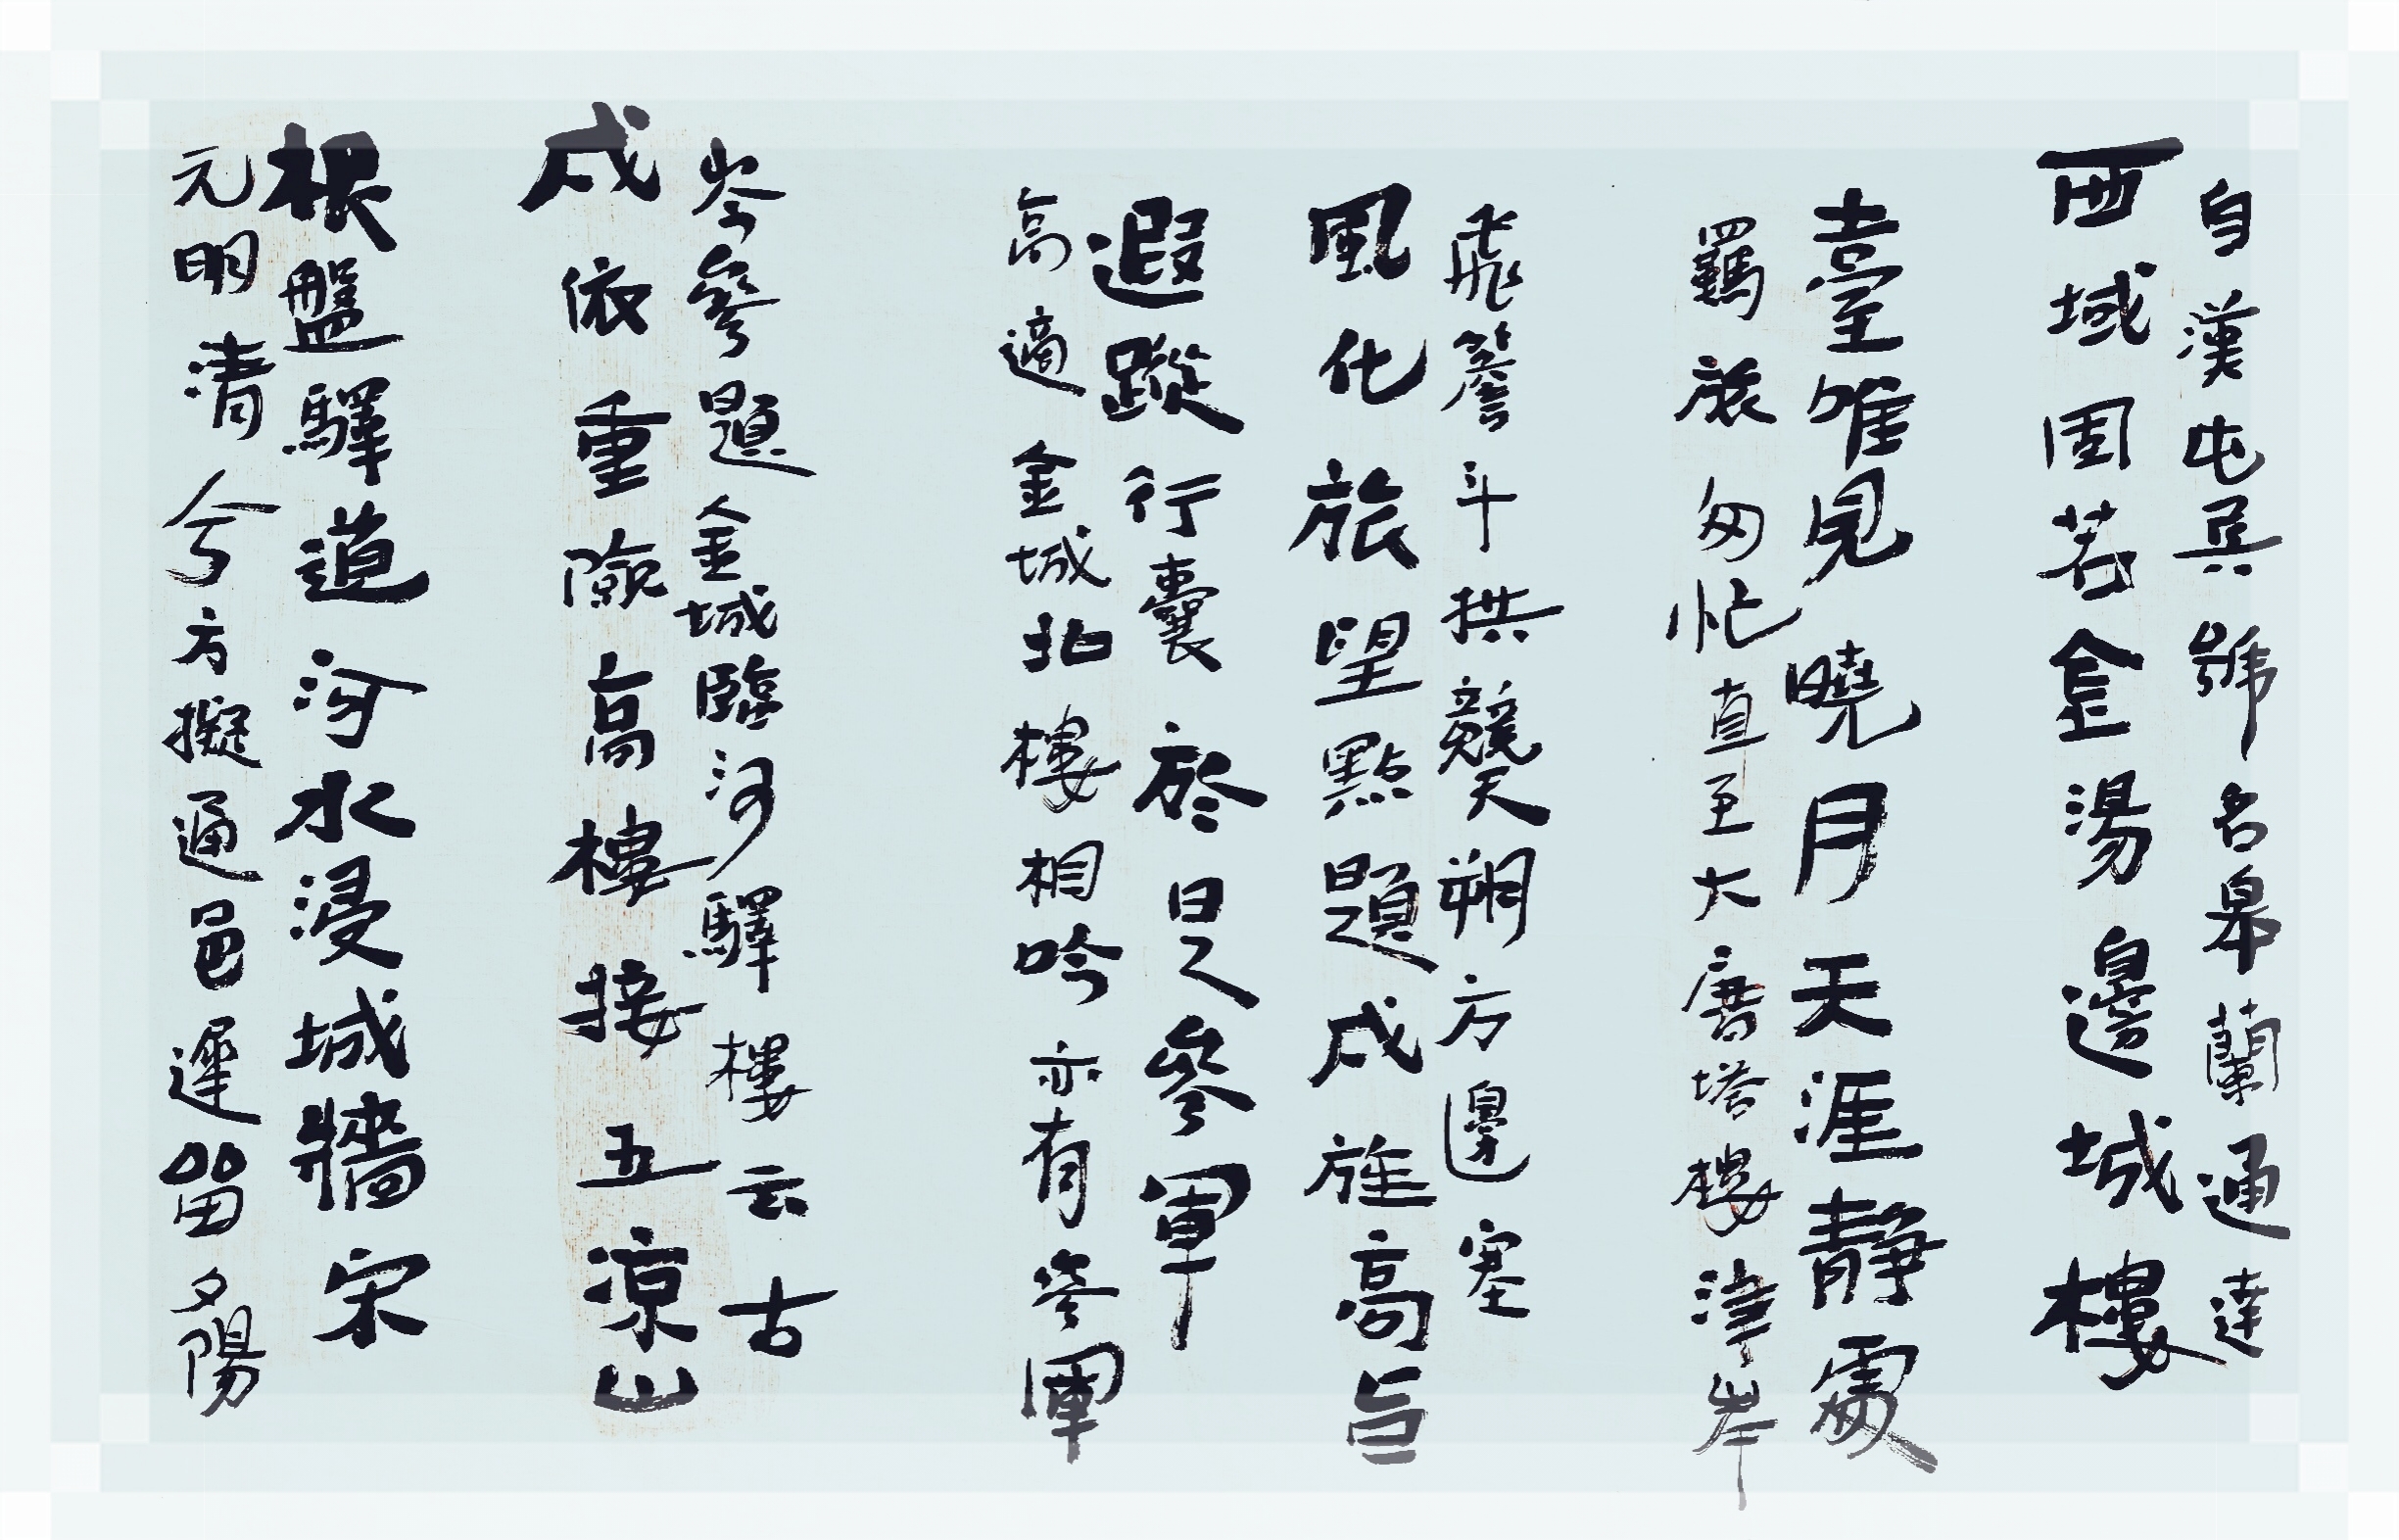 自漢屯兵號名皋蘭通達
西域固若金湯邊城樓
臺唯見曉月天涯靜處
羈旅匆忙直至大唐塔樓津岸
飛簷斗拱競天朔方邊塞
風化旅望點題戍旌高
遐蹤行囊於是參軍
高適金城北樓相吟亦有岑
岑參題金城臨河驛樓云古
戍依重險高樓接五涼山
根盤驛道河水浸城牆宋
元明清兮方擬通邑遲留夕陽